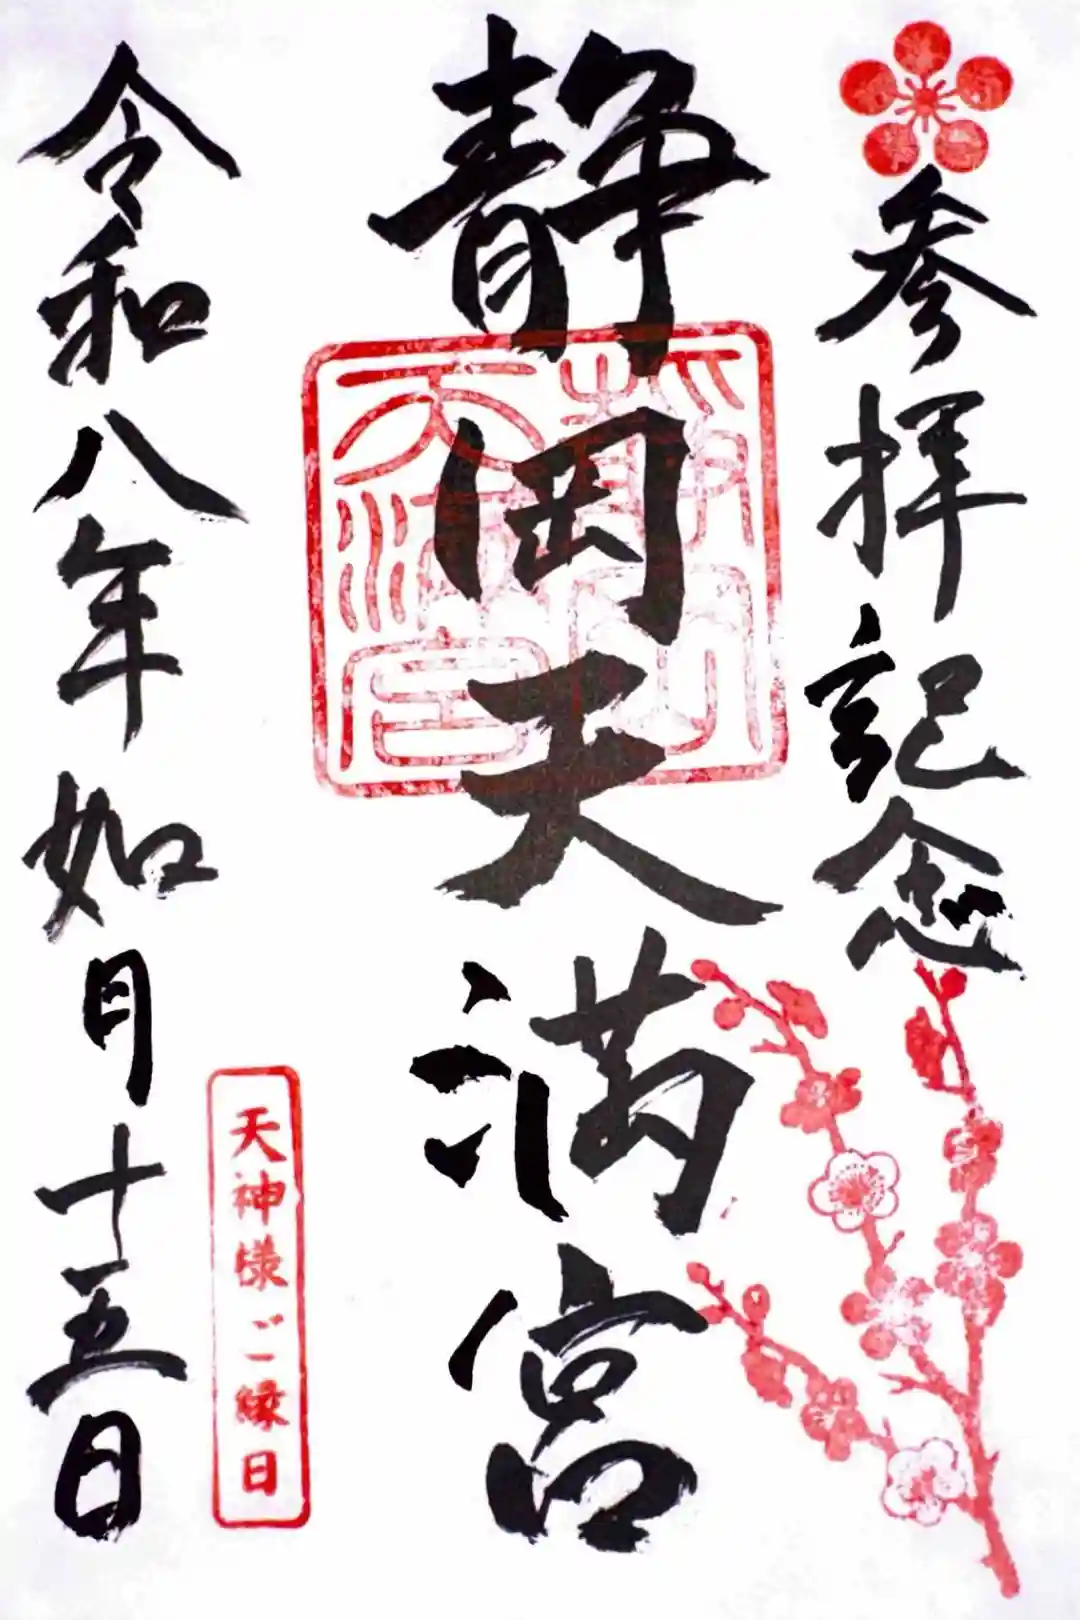 参拝記念
静岡天満宮
静岡天満宮
天神様ご縁日
令和八年如月十五日